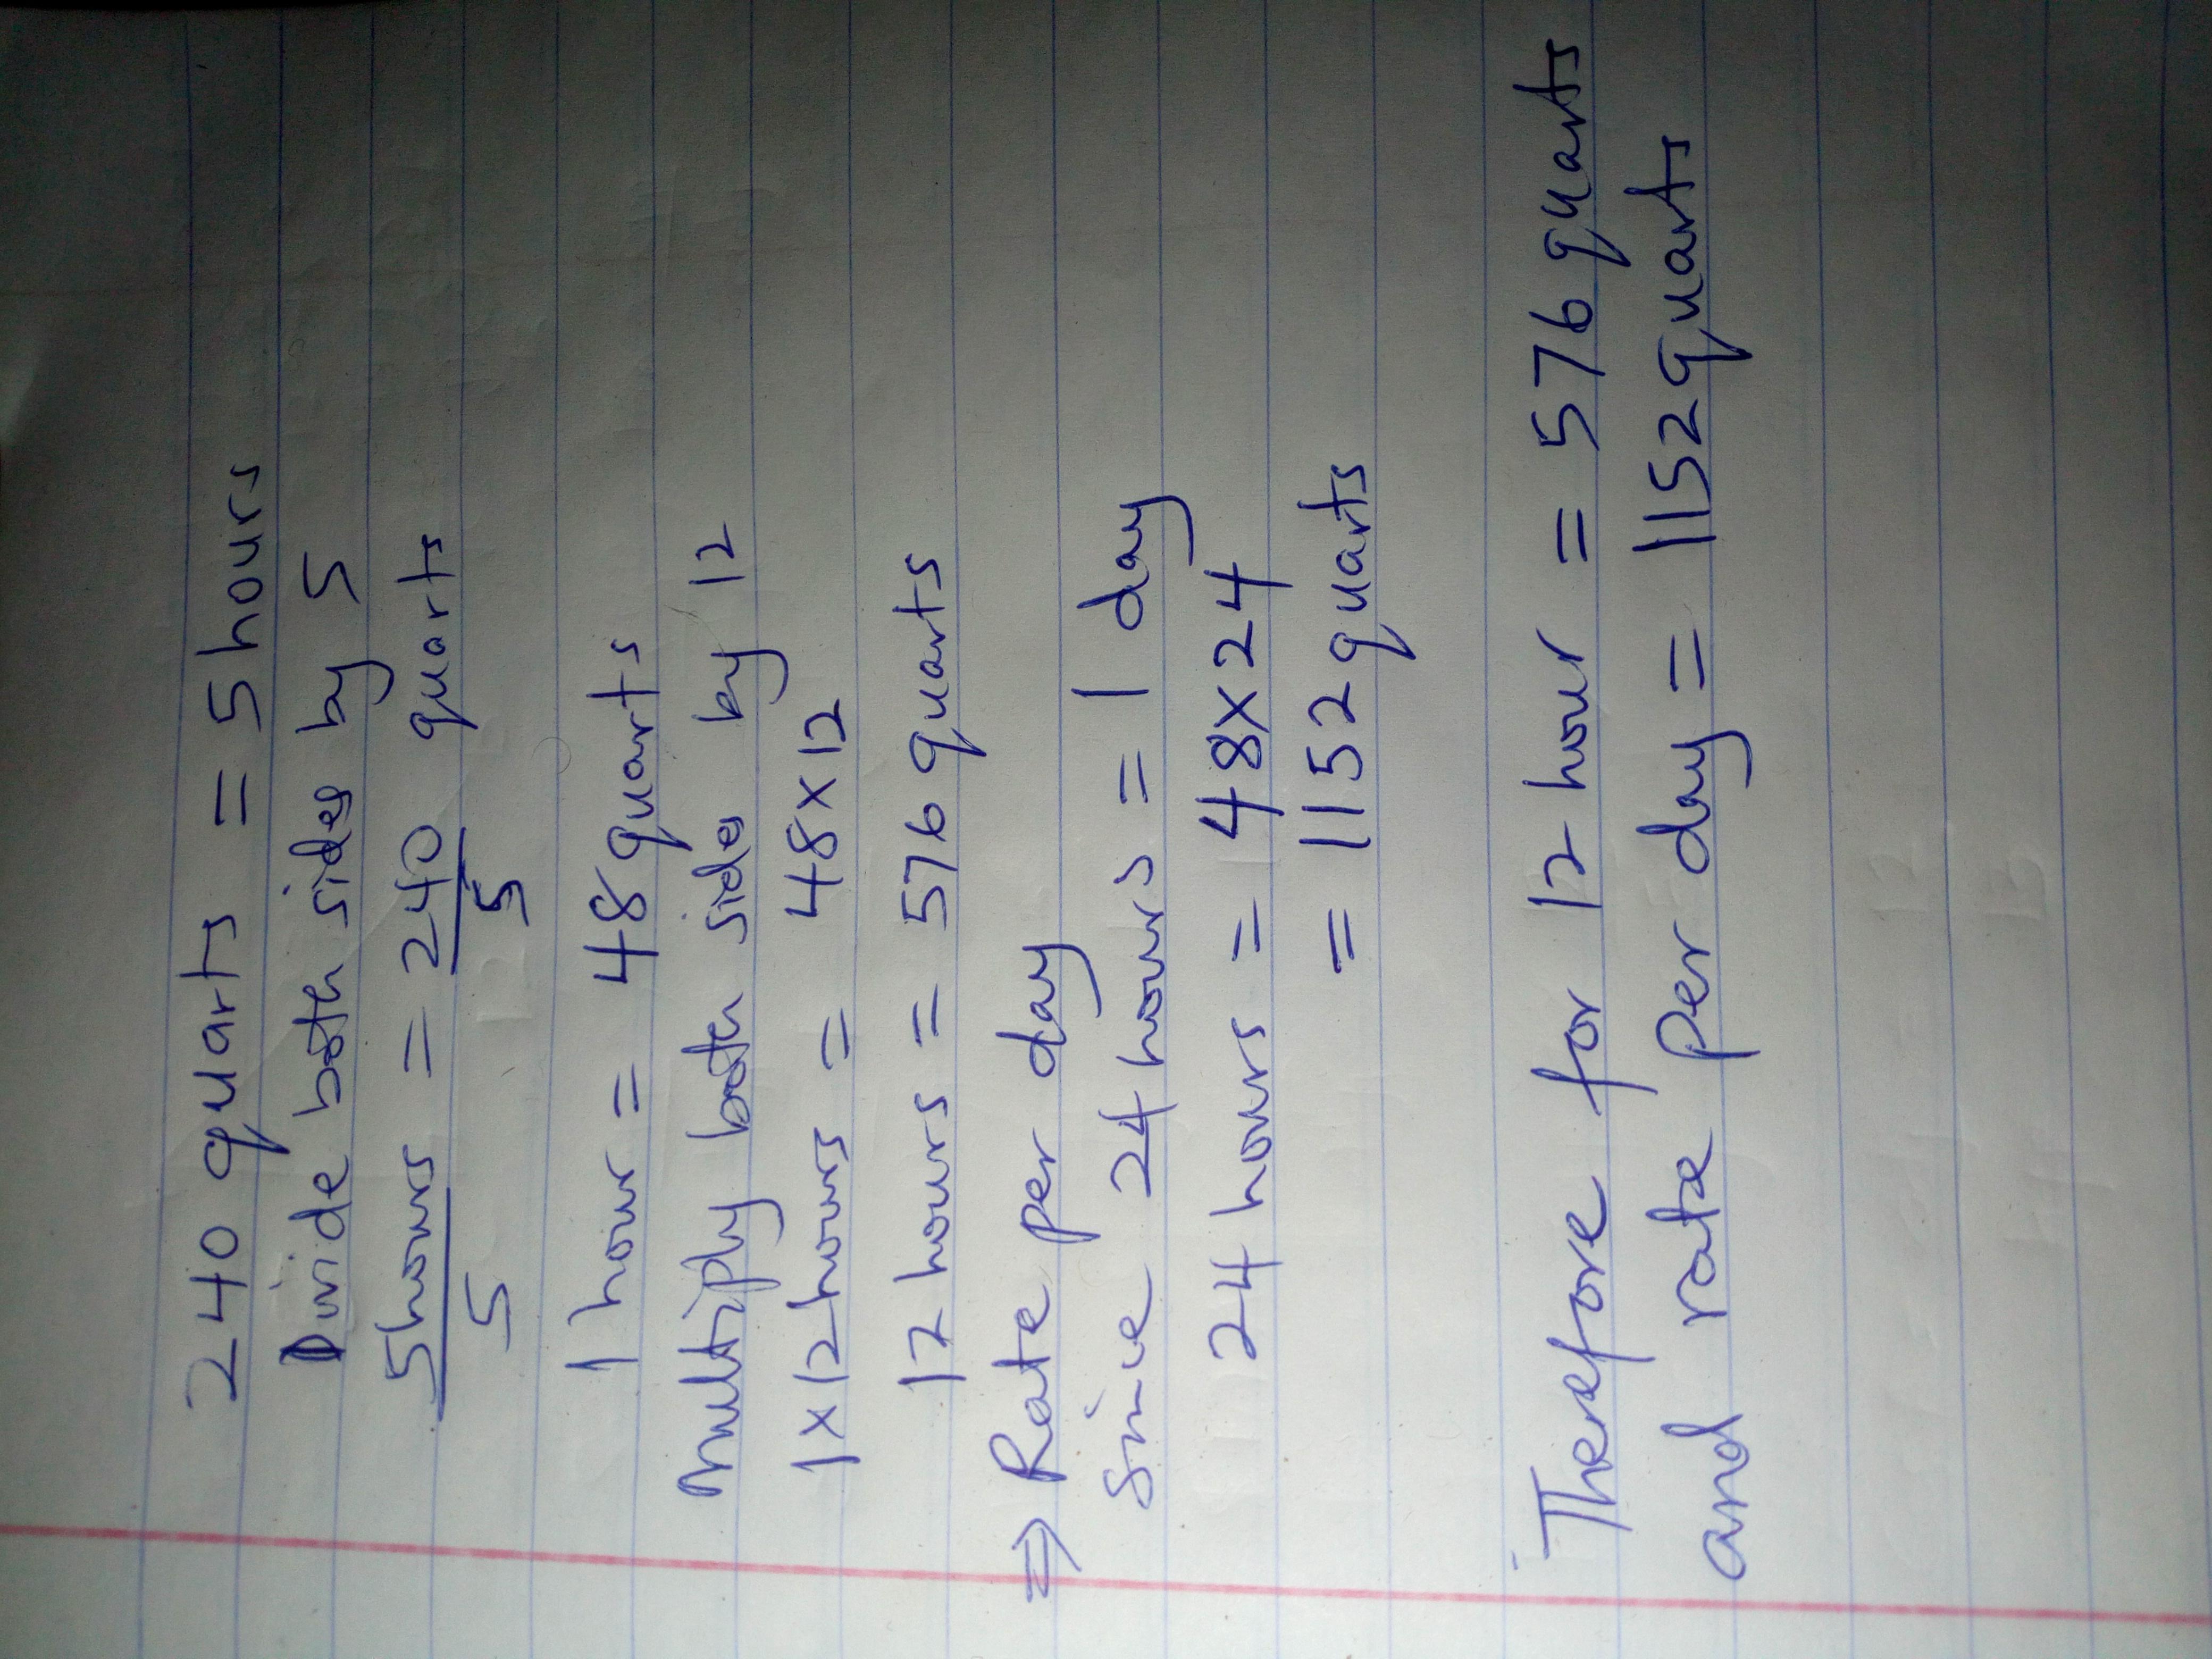 240 quarts = 5 hours
Divide both sides by 5
5hours/5 = 240/5 quarts
1 hour = 48 quarts
multiply both sides by 12
1x12hours = 48x12
12 hours = 576 quarts
⇒ Rate per day
since 24 hours = 1 day
24 hours = 48x24
= 1152 quarts
Therefore for 12 hour = 576 quarts
and rate per day = 1152 quarts